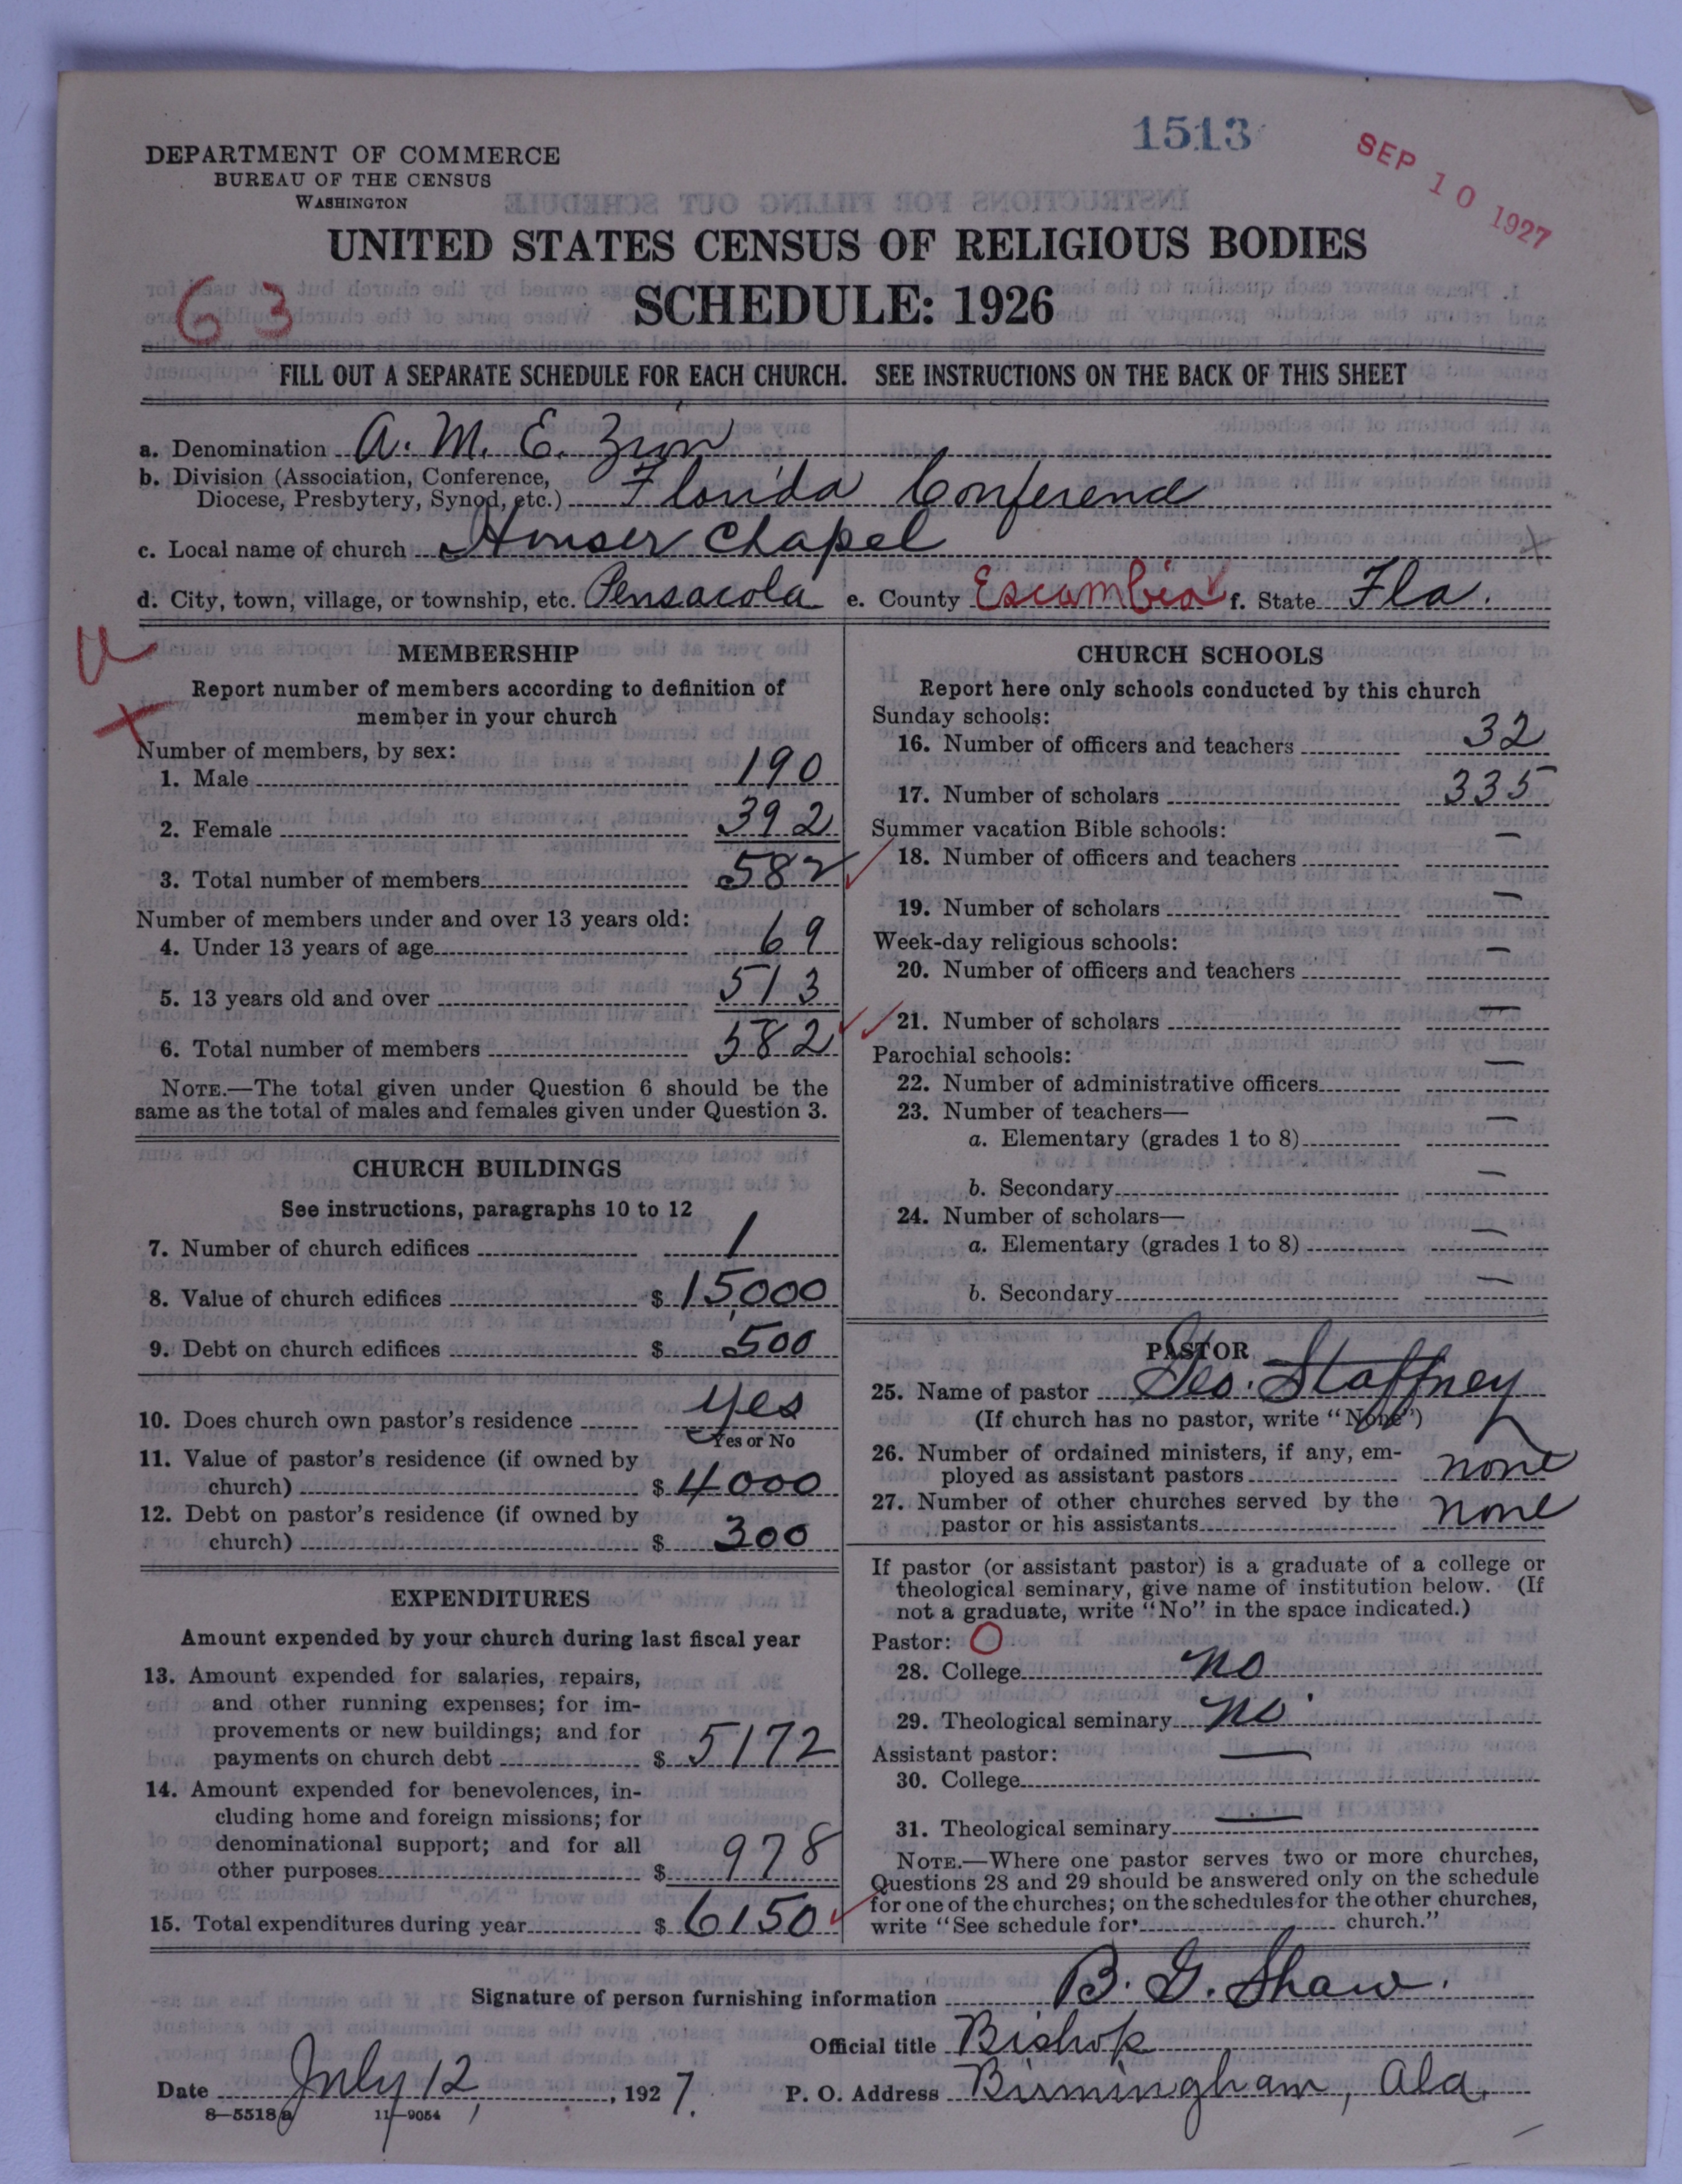 1513
SEP 10 1927
DEPARTMENT OF COMMERCE
BUREAU OF THE CENSUS
WASHINGTON
UNITED STATES CENSUS OF RELIGIOUS BODIES
63
SCHEDULE: 1926
FILL OUT A SEPARATE SCHEDULE FOR EACH CHURCH. SEE INSTRUCTIONS ON THE BACK OF THIS SHEET
a. Denomination A. M. E. Zion
b. Division (Association, Conference,
Diocese, Presbytery, Synod, etc.) Florida Conference
c. Local name of church Houser Chapel
d. City, town, village, or township, etc. Pensacola e. County Escambia f. State Fla.
MEMBERSHIP
Report number of members according to definition of
member in your church
Number of members, by sex:
1. Male 190
2. Female 392
3. Total number of members 582
Number of members under and over 13 years old:
4. Under 13 years of age 69
5. 13 years old and over 513
6. Total number of members 582
NOTE.—The total given under Question 6 should be the
same as the total of males and females given under Question 3.
CHURCH BUILDINGS
See instructions, paragraphs 10 to 12
7. Number of church edifices 1
8. Value of church edifices $ 15,000
9. Debt on church edifices $ 500
10. Does church own pastor's residence yes
Yes or No
11. Value of pastor's residence (if owned by
church) $ 4000
12. Debt on pastor's residence (if owned by
church) $ 300
EXPENDITURES
Amount expended by your church during last fiscal year
13. Amount expended for salaries, repairs,
and other running expenses; for im-
provements or new buildings; and for
payments on church debt $ 5172
14. Amount expended for benevolences, in-
cluding home and foreign missions; for
denominational support; and for all
other purposes $ 978
15. Total expenditures during year $ 6150
CHURCH SCHOOLS
Report here only schools conducted by this church
Sunday schools:
16. Number of officers and teachers 32
17. Number of scholars 335
Summer vacation Bible schools:
18. Number of officers and teachers —
19. Number of scholars —
Week-day religious schools:
20. Number of officers and teachers —
21. Number of scholars —
Parochial schools:
22. Number of administrative officers —
23. Number of teachers—
a. Elementary (grades 1 to 8) —
b. Secondary —
24. Number of scholars—
a. Elementary (grades 1 to 8) —
b. Secondary —
PASTOR
25. Name of pastor Geo. Staffney
(If church has no pastor, write "None")
26. Number of ordained ministers, if any, em-
ployed as assistant pastors none
27. Number of other churches served by the
pastor or his assistants none
If pastor (or assistant pastor) is a graduate of a college or
theological seminary, give name of institution below. (If
not a graduate, write "No" in the space indicated.)
Pastor: O
28. College no
29. Theological seminary no
Assistant pastor: —
30. College
31. Theological seminary —
NOTE.—Where one pastor serves two or more churches,
Questions 28 and 29 should be answered only on the schedule
for one of the churches; on the schedules for the other churches,
write "See schedule for church."
Signature of person furnishing information B. G. Shaw.
Official title Bishop
Date July 12, 1927. P. O. Address Birmingham, Ala.
8—5518a 11—9054